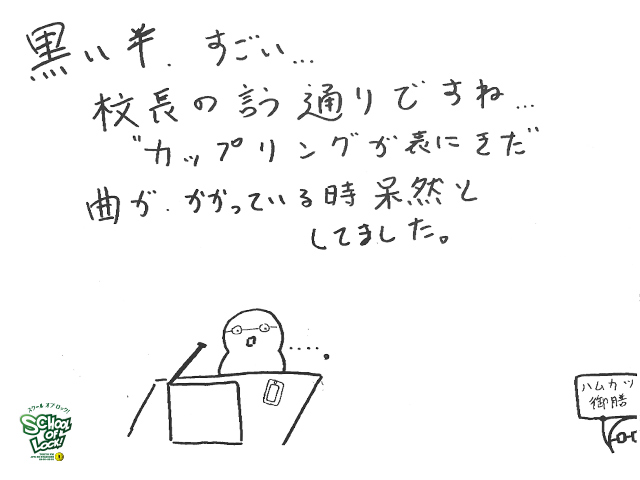 黒い半、すごい...
校長の言う通りですね...
"カップリングが表にきた"
曲が、かかっている時呆然と
してました。
.....
ハムカツ
御膳
スクール オブ ロック!
SCHOOL
OF
LOCK!